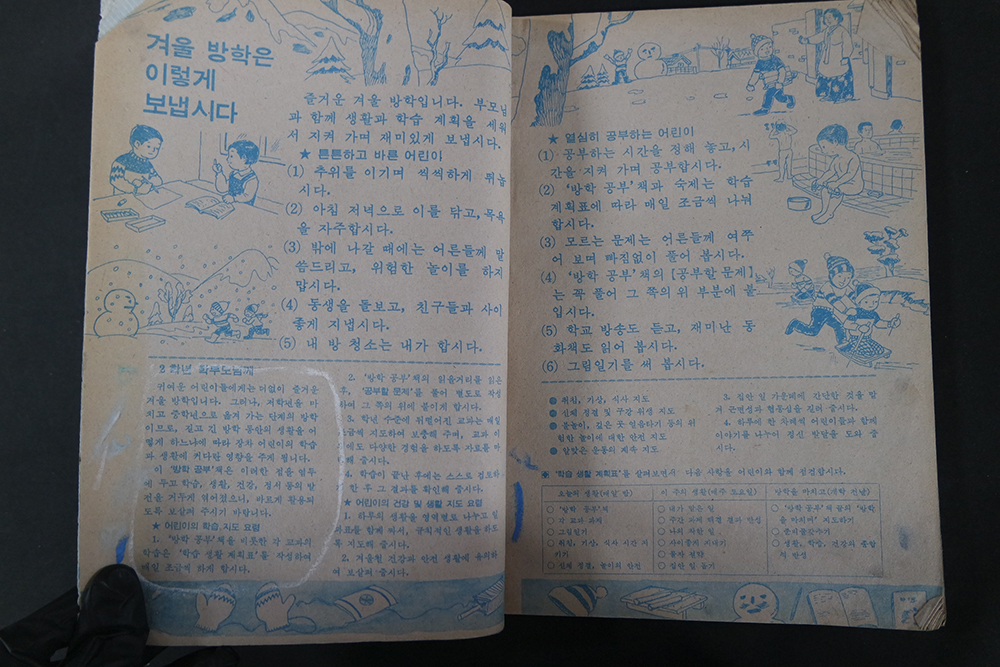 겨울 방학은
이렇게
보냅시다
즐거운 겨울 방학입니다. 부모님
과 함께 생활과 학습 계획을 세워
서 지켜 가며 재미있게 보냅시다.
★ 튼튼하고 바른 어린이
(1) 추위를 이기며 씩씩하게 뛰놉
시다.
(2) 아침 저녁으로 이를 닦고, 목욕
을 자주합시다.
(3) 밖에 나갈 때에는 어른들께 말
씀드리고, 위험한 놀이를 하지
맙시다.
(4) 동생을 돌보고, 친구들과 사이
좋게 지냅시다.
(5) 내 방 청소는 내가 합시다.
2 학년 학부모님께
귀여운 어린이들에게는 더없이 즐거운
겨울 방학입니다. 그러나, 저학년을 마
치고 중학년으로 옮겨 가는 단계의 방학
이므로, 길고 긴 방학 동안의 생활을 어
떻게 하느냐에 따라 장차 어린이의 학습
과 생활에 커다란 영향을 주게 됩니다.
이 '방학 공부'책은 이러한 점을 염두
에 두고 학습, 생활, 건강, 정서 등의 발
전을 꾀하여 엮어졌으니, 바르게 활용되
도록 보살펴 주시기 바랍니다.
★ 어린이의 학습, 지도 요령
1. '방학 공부'책을 비롯한 각 교과의
학습은 '학습 생활 계획표'를 작성하여
매일 조금씩 하게 합시다.
2. '방학 공부'책의 읽을거리를 읽은
후, '공부할 문제'를 풀어 별도로 작성
하여 그 쪽의 위에 붙이게 합시다.
3. 학년 수준에 뒤떨어진 교과는 매일
조금씩 지도하여 보충해 주며, 교과 이
외에도 다양한 경험을 하도록 자료를 마
련해 줍시다.
4. 학습이 끝난 후에는 스스로 검토하
게 한 후 그 결과를 확인해 줍시다.
★ 어린이의 건강 및 생활 지도 요령
1. 하루의 생활을 영역별로 나누고 일
과표를 함께 짜서, 규칙적인 생활을 하도
록 지도해 줍시다.
2. 겨울철 건강과 안전 생활에 유의하
여 보살펴 줍시다.
★ 열심히 공부하는 어린이
(1) 공부하는 시간을 정해 놓고, 시
간을 지켜 가며 공부합시다.
(2) '방학 공부'책과 숙제는 학습
계획표에 따라 매일 조금씩 나눠
합시다.
(3) 모르는 문제는 어른들께 여쭈
어 보며 빠짐없이 풀어 봅시다.
(4) '방학 공부'책의 [공부할 문제]
는 꼭 풀어 그 쪽의 위 부분에 붙
입시다.
(5) 학교 방송도 듣고, 재미난 동
화책도 읽어 봅시다.
(6) 그림일기를 써 봅시다.
● 취침, 기상, 식사 지도
● 신체 청결 및 구강 위생 지도
● 불놀이, 깊은 곳 얼음타기 등의 위
험한 놀이에 대한 안전 지도
● 알맞은 운동의 계속 지도
3. 집안 일 가운데에 간단한 것을 맡
겨 근면성과 협동심을 길러 줍시다.
4. 하루에 한 차례씩 어린이들과 함께
이야기를 나누어 정신 발달을 도와 줍
시다.
※ '학습 생활 계획표'를 살펴보면서 다음 사항을 어린이와 함께 점검합시다.
오늘의 생활(매일 밤)
이 주의 생활(매주 토요일)
방학을 마치고(개학 전날)
○ '방학 공부'책
○ 각 교과 과제
○ 그림일기
○ 취침, 기상, 식사 시간 지
키기
○ 신체 청결, 놀이의 안전
○ 내가 맡은 일
○ 주간 과제 해결 결과 반성
○ 나의 착한 일
○ 사이좋게 지내기
○ 물자 절약
○ 집안 일 돕기
○ '방학 공부'책 끝의 '방학
을 마치며' 지도하기
○ 준비물 갖추기
○ 생활, 학습, 건강의 종합
적 반성